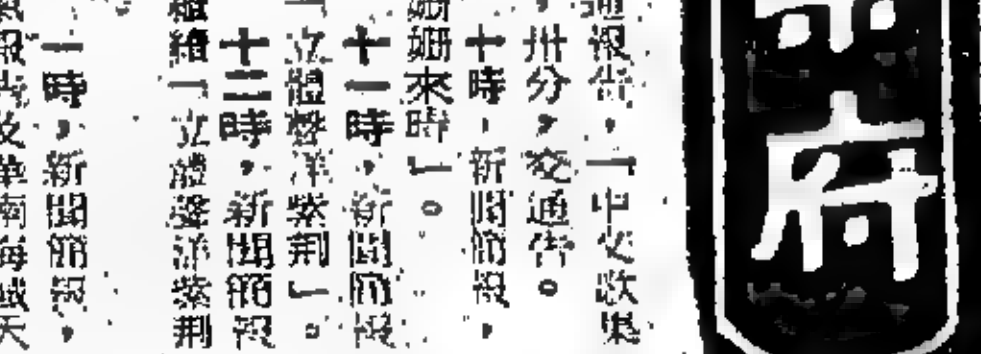 府
通報告，「中文歌集
，卅分，交通告。
十時，新聞簡報，
姍姍來時」。
十一時，新聞簡報
「立體聲洋紫荊」。
十二時，新聞簡報
繼續「立體聲洋紫荊
一時，新聞簡報，
氣報告及華南海域天